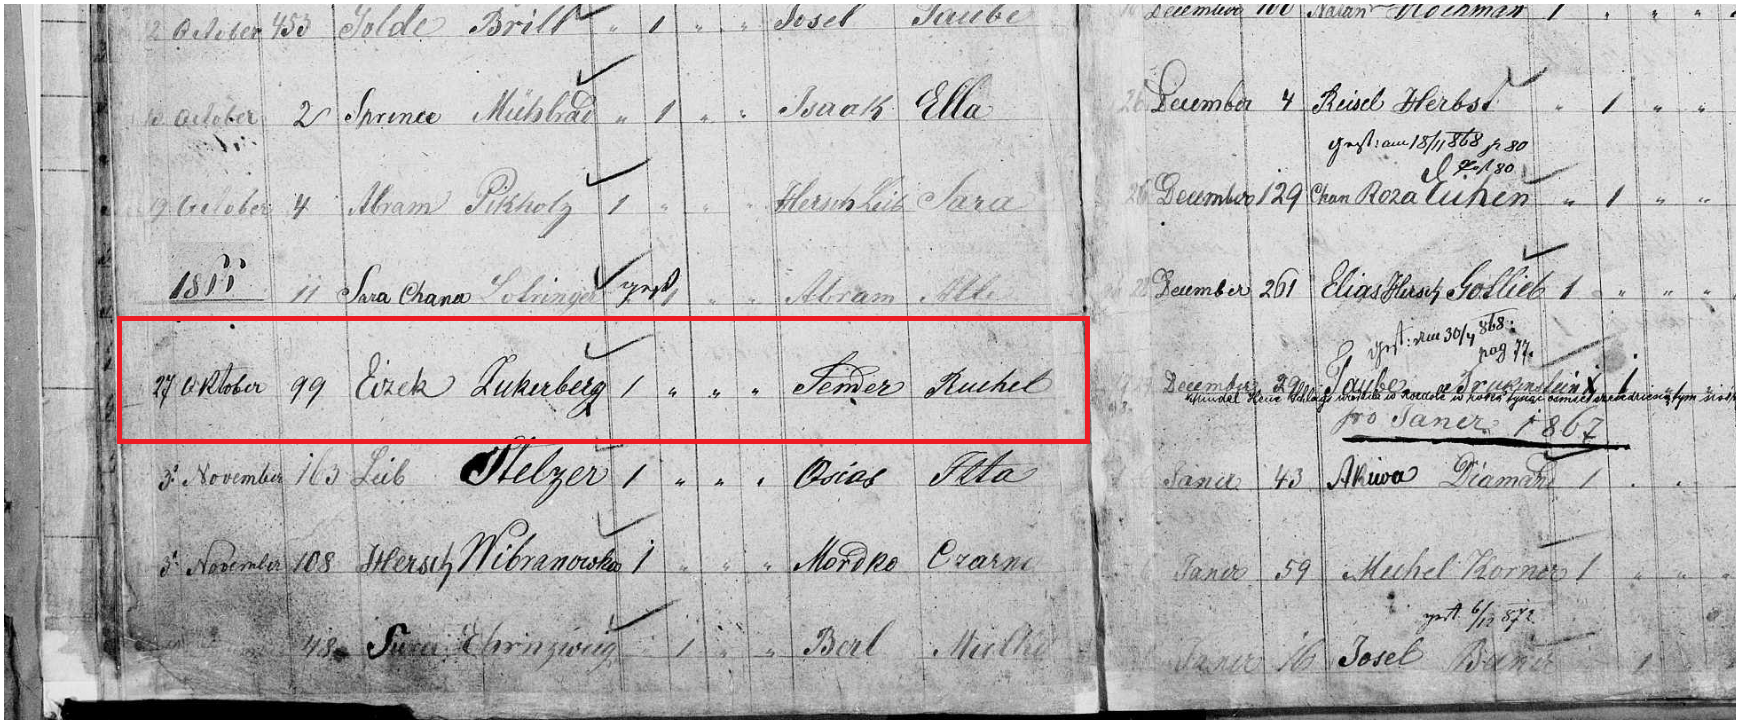 October 453 Golde Brill " 1 " " Josel Taube
October 2 Sprince Mühlrad " 1 " " Isaak Ella
19 October 4 Abram Pikholz 1 " " " Hersch Leib Sara
11 Sara Chana Lotringer gest 1 " " Abram
27 Oktober 99 Eizek Zukerberg 1 " " " Sender Ruchel
3 November 163 Leib Stelzer 1 " " " Osias Itta
3 November 108 Hersch Wibranowski 1 " " " Mordko Czarne
48 Sura Ehrnzweig 1 " " Berl Malke
December Natan Hochman 1 " " "
26 December 4 Reisel Herbst " 1 " "
gest: am 18/11 868 p 80
80
26 December 129 Chan Roza Eichen " 1 " "
December 261 Elias Hersch Gotlieb 1 " " "
gest: am 30/4 868:
pag 77.
December 29 Taube 1
pro Janer 1867
Janer 43 Akiwa Diamand 1
Janer 59 Mechel Korner 1 " " "
gest 6/12 872
Janer 16 Josel 1